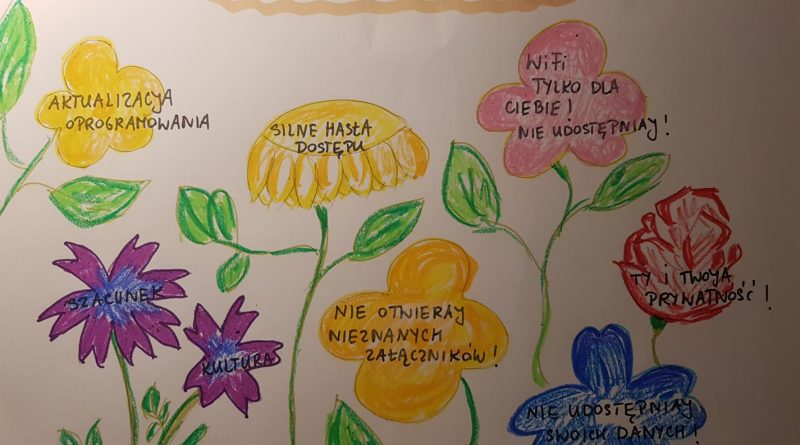 AKTUALIZACJA
OPROGRAMOWANIA
SILNE HASŁA
DOSTĘPU
WiFi
TYLKO DLA
CIEBIE!
NIE UDOSTĘPNIAJ!
SZACUNEK
KULTURA
NIE OTWIERAJ
NIEZNANYCH
ZAŁĄCZNIKÓW!
TY I TWOJA
PRYWATNOŚĆ!
NIE UDOSTĘPNIAJ
SWOICH DANYCH!